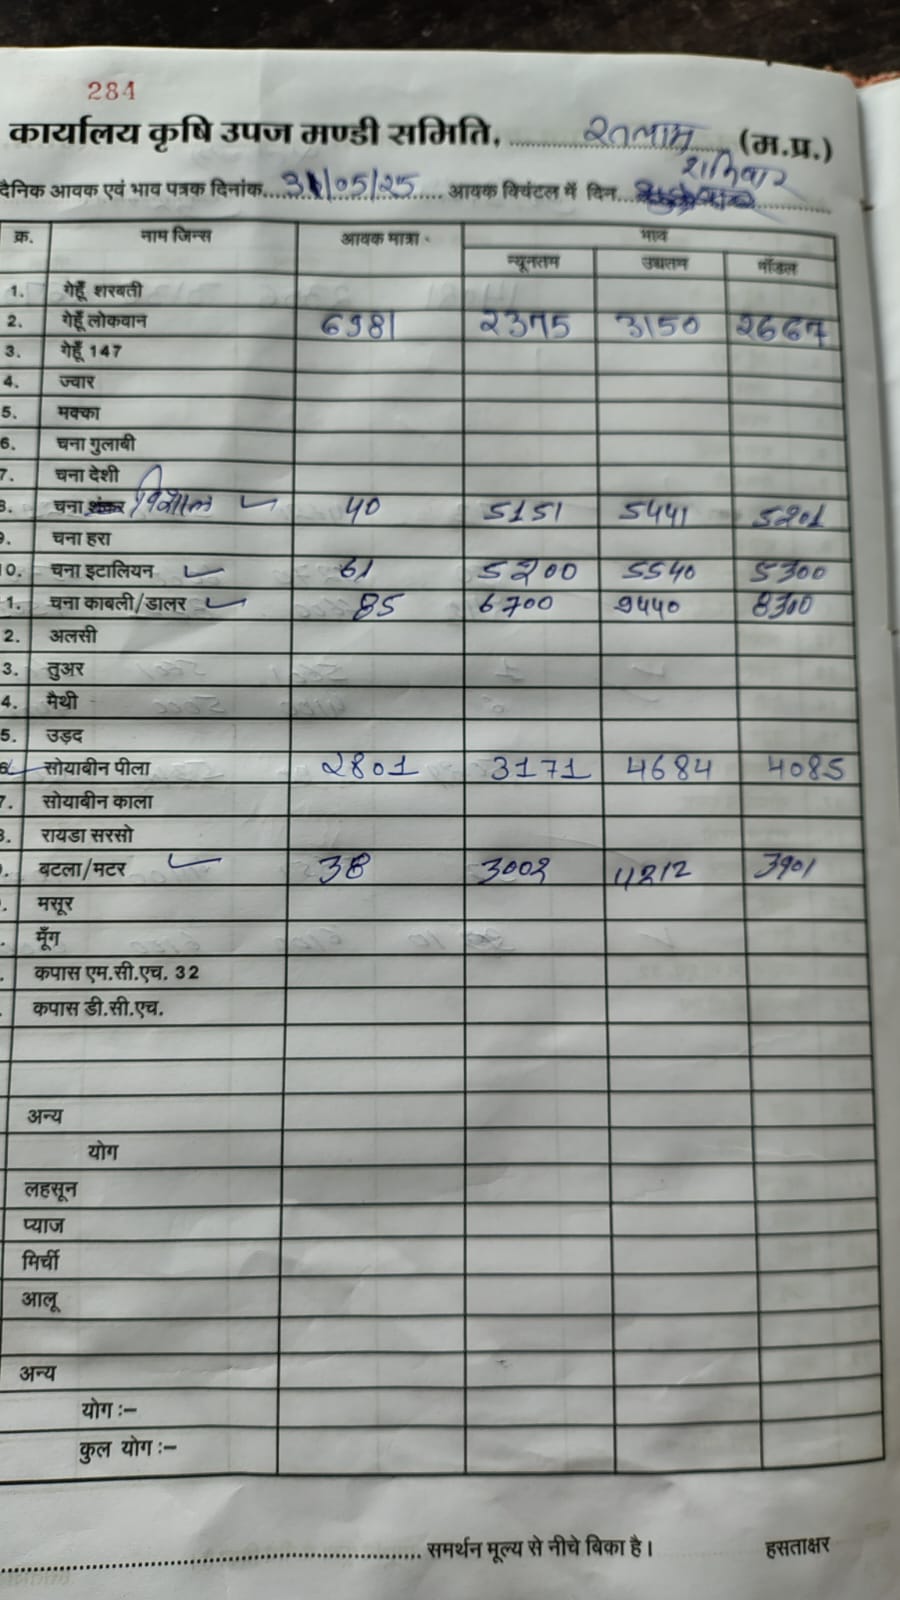 284
कार्यालय कृषि उपज मण्डी समिति, रतलाम (म.प्र.)
दैनिक आवक एवं भाव पत्रक दिनांक 31/05/25 आवक क्विंटल में दिन शनिवार
क्र. नाम जिन्स आवक मात्रा भाव
न्यूनतम उच्चतम मॉडल
1. गेहूँ शरबती
2. गेहूँ लोकवान 6981 2375 3150 2667
3. गेहूँ 147
4. ज्वार
5. मक्का
6. चना गुलाबी
7. चना देशी
8. चना विशाल 40 5151 5441 5201
9. चना हरा
10. चना इटालियन 61 5200 5540 5300
1. चना काबली/डालर 85 6700 9440 8300
2. अलसी
3. तुअर
4. मैथी
5. उड़द
6. सोयाबीन पीला 2801 3171 4684 4085
7. सोयाबीन काला
8. रायडा सरसो
. बटला/मटर 38 3002 11212 3901
. मसूर
. मूँग
. कपास एम.सी.एच. 32
. कपास डी.सी.एच.
अन्य
योग
लहसून
प्याज
मिर्ची
आलू
अन्य
योग :–
कुल योग :–
समर्थन मूल्य से नीचे बिका है। हसताक्षर